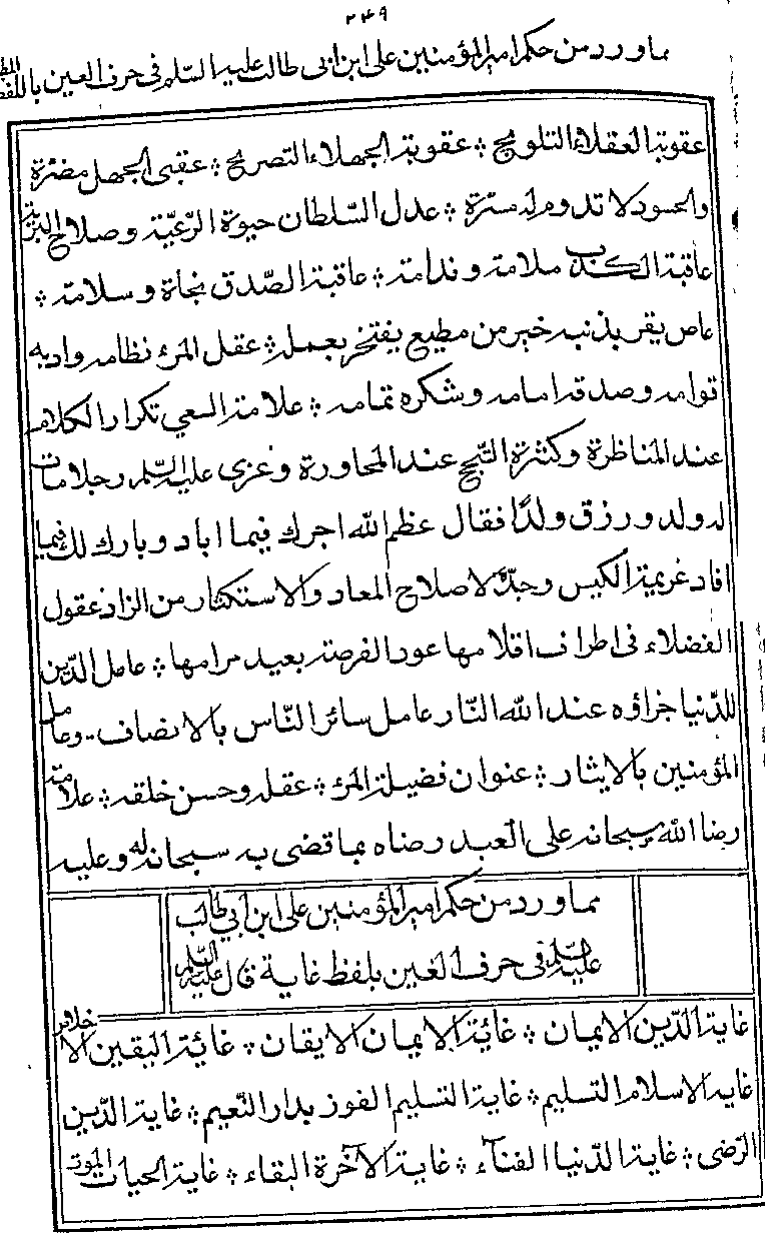 ٢٤٩
مما ورد من حكم امير المؤمنين على ابن ابى طالب عليه السّلم فى حرف العين باللفظ
عقوبة العقلاء التلويح ؛ عقوبة الجهلاء التصريح ؛ عقبى الجهل مضرّة
والحسود لا تدوم له مسرّة ؛ عدل السّلطان حيوة الرّعيّة وصلاح البريّة
عاقبة الكذب ملامة وندامة ؛ عاقبة الصّدق نجاة وسلامة ؛
عاص يقر بذنبه خير من مطيع يفتخر بعمله ؛ عقل المرء نظامه وادبه
قوامه وصدقه امامه وشكره تمامه ؛ علامة العي تكرار الكلام
عند المناظرة وكثرة التبجح عند المحاورة وعزى عليه السّلم رجلا مات
له ولد ورزق ولدًا فقال عظم الله اجرك فيما اباد وبارك لك فيما
افاد عزيمة الكيس وجدّه لاصلاح المعاد والاستكثار من الزاد عقول
الفضلاء فى اطراف اقلامها عود الفرصة بعيد مرامها ؛ عامل الدّين
للدّنيا جزاؤه عند الله النّار عامل سائر النّاس بالانصاف - وعامل
المؤمنين بالايثار ؛ عنوان فضيلة المرء ؛ عقله وحسن خلقه ؛ علامة
رضا الله سبحانه على العبد رضاه بما قضى به سبحانه له وعليه
مما ورد من حكم امير المؤمنين على ابن أبي طالب
عليه السّلم فى حرف الغين بلفظ غاية قال عليه السّلم
غاية الدّين الايمان ؛ غائة الايمان الايقان ؛ غائة اليقين الاخلاص
غاية الاسلام التسليم ؛ غاية التسليم الفوز بدار النّعيم ؛ غاية الدّين
الرّضى ؛ غاية الدّنيا الفنآء ؛ غاية الآخرة البقاء ؛ غاية الحيات الموت